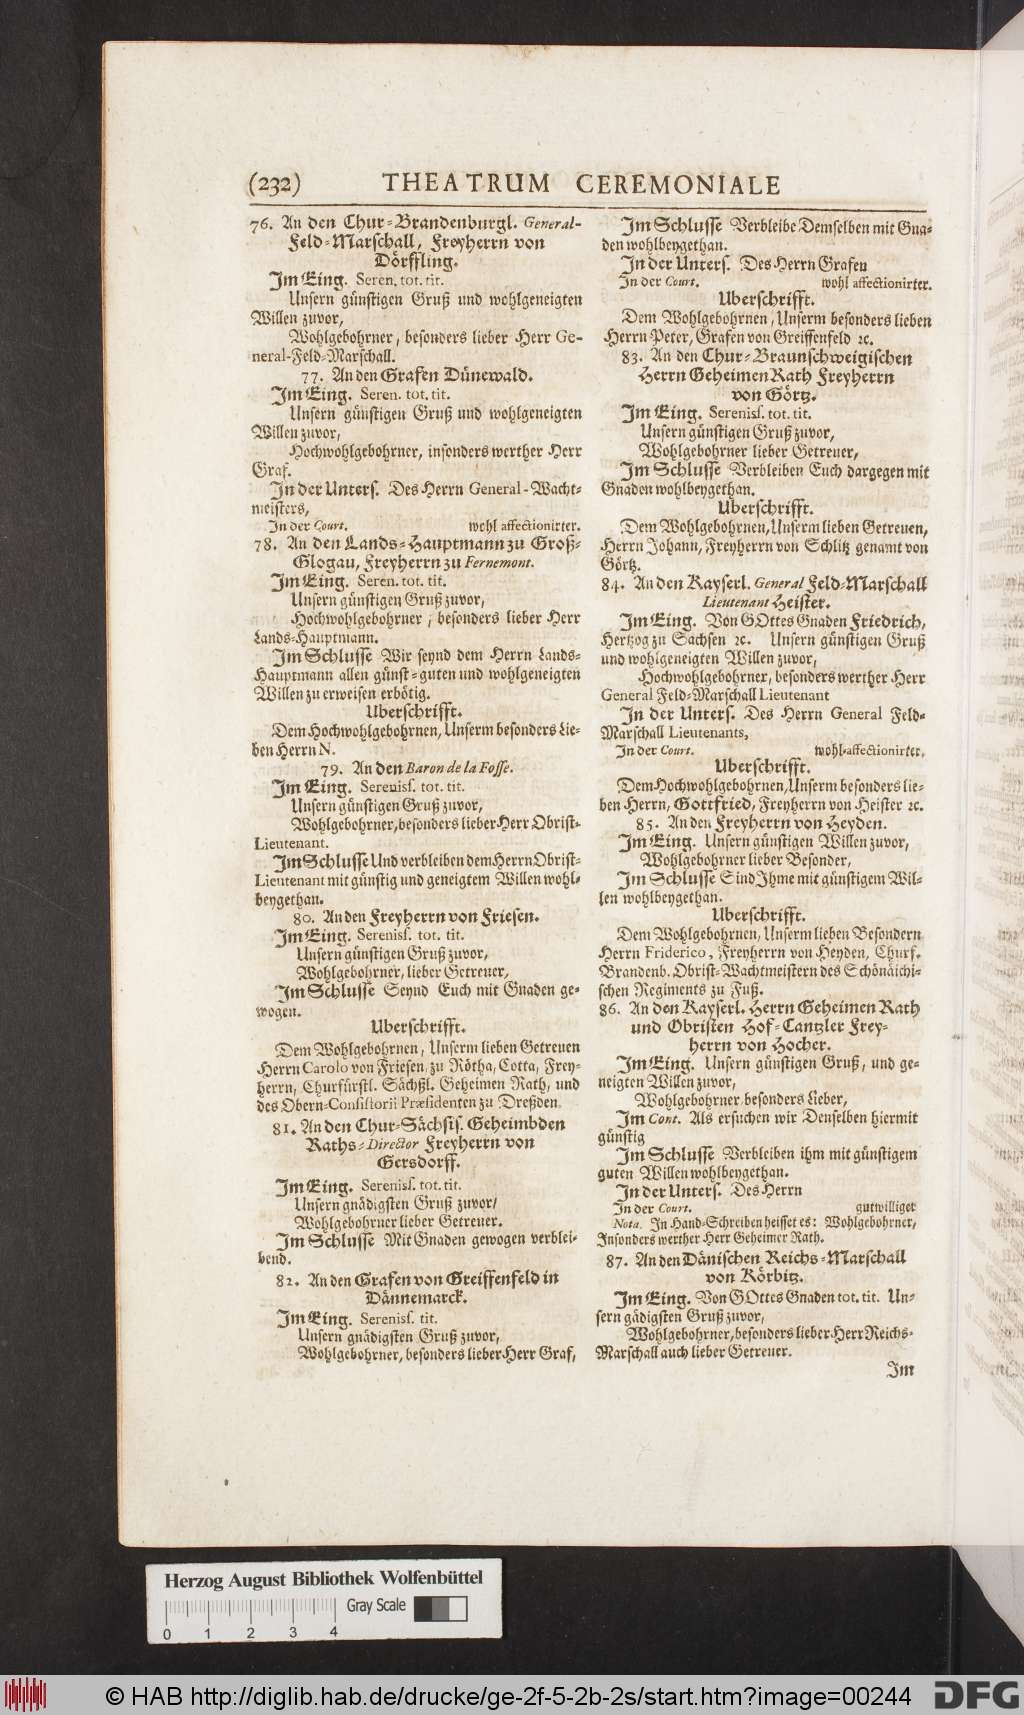 (232) THEATRUM CEREMONIALE
76. An den Chur-Brandenburgl. General-
Feld-Marschall, Freyherrn von
Dörffling.
Im Eing. Seren. tot. tit.
Unsern günstigen Gruß und wohlgeneigten
Willen zuvor,
Wohlgebohrner, besonders lieber Herr Ge-
neral-Feld-Marschall.
77. An den Grafen Dünewald.
Im Eing. Seren. tot. tit.
Unsern günstigen Gruß und wohlgeneigten
Willen zuvor,
Hochwohlgebohrner, insonders werther Herr
Graf.
In der Unters. Des Herrn General-Wacht-
meisters,
In der Court. wohl affectionirter.
78. An den Lands-Hauptmann zu Groß-
Glogau, Freyherrn zu Fernemont.
Im Eing. Seren. tot. tit.
Unsern günstigen Gruß zuvor,
Hochwohlgebohrner, besonders lieber Herr
Lands-Hauptmann.
Im Schlusse Wir seynd dem Herrn Lands-
Hauptmann allen günst-guten und wohlgeneigten
Willen zu erweisen erbötig.
Uberschrifft.
Dem Hochwohlgebohrnen, Unserm besonders Lie-
ben Herrn N.
79. An den Baron de la Fosse.
Im Eing. Sereniss. tot. tit.
Unsern günstigen Gruß zuvor,
Wohlgebohrner, besonders lieber Herr Obrist-
Lieutenant.
Im Schlusse Und verbleiben dem Herrn Obrist-
Lieutenant mit günstig und geneigtem Willen wohl-
beygethan.
80. An den Freyherrn von Friesen.
Im Eing. Sereniss. tot. tit.
Unsern günstigen Gruß zuvor,
Wohlgebohrner, lieber Getreuer,
Im Schlusse Seynd Euch mit Gnaden ge-
wogen.
Uberschrifft.
Dem Wohlgebohrnen, Unserm lieben Getreuen
Herrn Carolo von Friesen, zu Rötha, Cotta, Frey-
herrn, Churfürstl. Sächßl. Geheimen Rath, und
des Obern-Consistorii Præsidenten zu Dreßden.
81. An den Chur-Sächsis. Geheimbden
Raths-Director Freyherrn von
Gersdorff.
Im Eing. Sereniss. tot. tit.
Unsern gnädigsten Gruß zuvor/
Wohlgebohrner lieber Getreuer.
Im Schlusse Mit Gnaden gewogen verblei-
bend.
82. An den Grafen von Greiffenfeld in
Dännemarck.
Im Eing. Sereniss. tit.
Unsern gnädigsten Gruß zuvor,
Wohlgebohrner, besonders lieber Herr Graf,
Im Schlusse Verbleibe Demselben mit Gna-
den wohlbeygethan.
In der Unters. Des Herrn Grafen
In der Court. wohl affectionirter.
Uberschrifft.
Dem Wohlgebohrnen, Unserm besonders lieben
Herrn Peter, Grafen von Greiffenfeld ꝛc.
83. An den Chur-Braunschweigischen
Herrn Geheimen Rath Freyherrn
von Görtz.
Im Eing. Sereniss. tot. tit.
Unsern günstigen Gruß zuvor,
Wohlgebohrner lieber Getreuer,
Im Schlusse Verbleiben Euch dargegen mit
Gnaden wohlbeygethan.
Uberschrifft.
Dem Wohlgebohrnen, Unserm lieben Getreuen,
Herrn Johann, Freyherrn von Schlitz genamt von
Görtz.
84. An den Kayserl. General Feld-Marschall
Lieutenant Heister.
Im Eing. Von GOttes Gnaden Friedrich,
Hertzog zu Sachsen ꝛc. Unsern günstigen Gruß
und wohlgeneigten Willen zuvor,
Hochwohlgebohrner, besonders werther Herr
General Feld-Marschall Lieutenant
In der Unters. Des Herrn General Feld-
Marschall Lieutenants,
In der Court. wohl-affectionirter.
Uberschrifft.
Dem Hochwohlgebohrnen, Unserm besonders lie-
ben Herrn, Gottfried, Freyherrn von Heister ꝛc.
85. An den Freyherrn von Heyden.
Im Eing. Unsern günstigen Willen zuvor,
Wohlgebohrner lieber Besonder,
Im Schlusse Sind Ihme mit günstigem Wil-
len wohlbeygethan.
Uberschrifft.
Dem Wohlgebohrnen, Unserm lieben Besondern
Herrn Friderico, Freyherrn von Heyden, Churf.
Brandenb. Obrist-Wachtmeistern des Schönäichi-
schen Regiments zu Fuß.
86. An den Kayserl. Herrn Geheimen Rath
und Obristen Hof-Cantzler Frey-
herrn von Hocher.
Im Eing. Unsern günstigen Gruß, und ge-
neigten Willen zuvor,
Wohlgebohrner besonders Lieber,
Im Cont. Als ersuchen wir Denselben hiermit
günstig
Im Schlusse Verbleiben ihm mit günstigem
guten Willen wohlbeygethan.
In der Unters. Des Herrn
In der Court. gutwilliger
Nota. In Hand-Schreiben heisset es: Wohlgebohrner,
Insonders werther Herr Geheimer Rath.
87. An den Dänischen Reichs-Marschall
von Körbitz.
Im Eing. Von GOttes Gnaden tot. tit. Un-
sern gädigsten Gruß zuvor,
Wohlgebohrner, besonders lieber Herr Reichs-
Marschall auch lieber Getreuer.
Im
Herzog August Bibliothek Wolfenbüttel
Gray Scale
0 1 2 3 4
© HAB http://diglib.hab.de/drucke/ge-2f-5-2b-2s/start.htm?image=00244
DFG